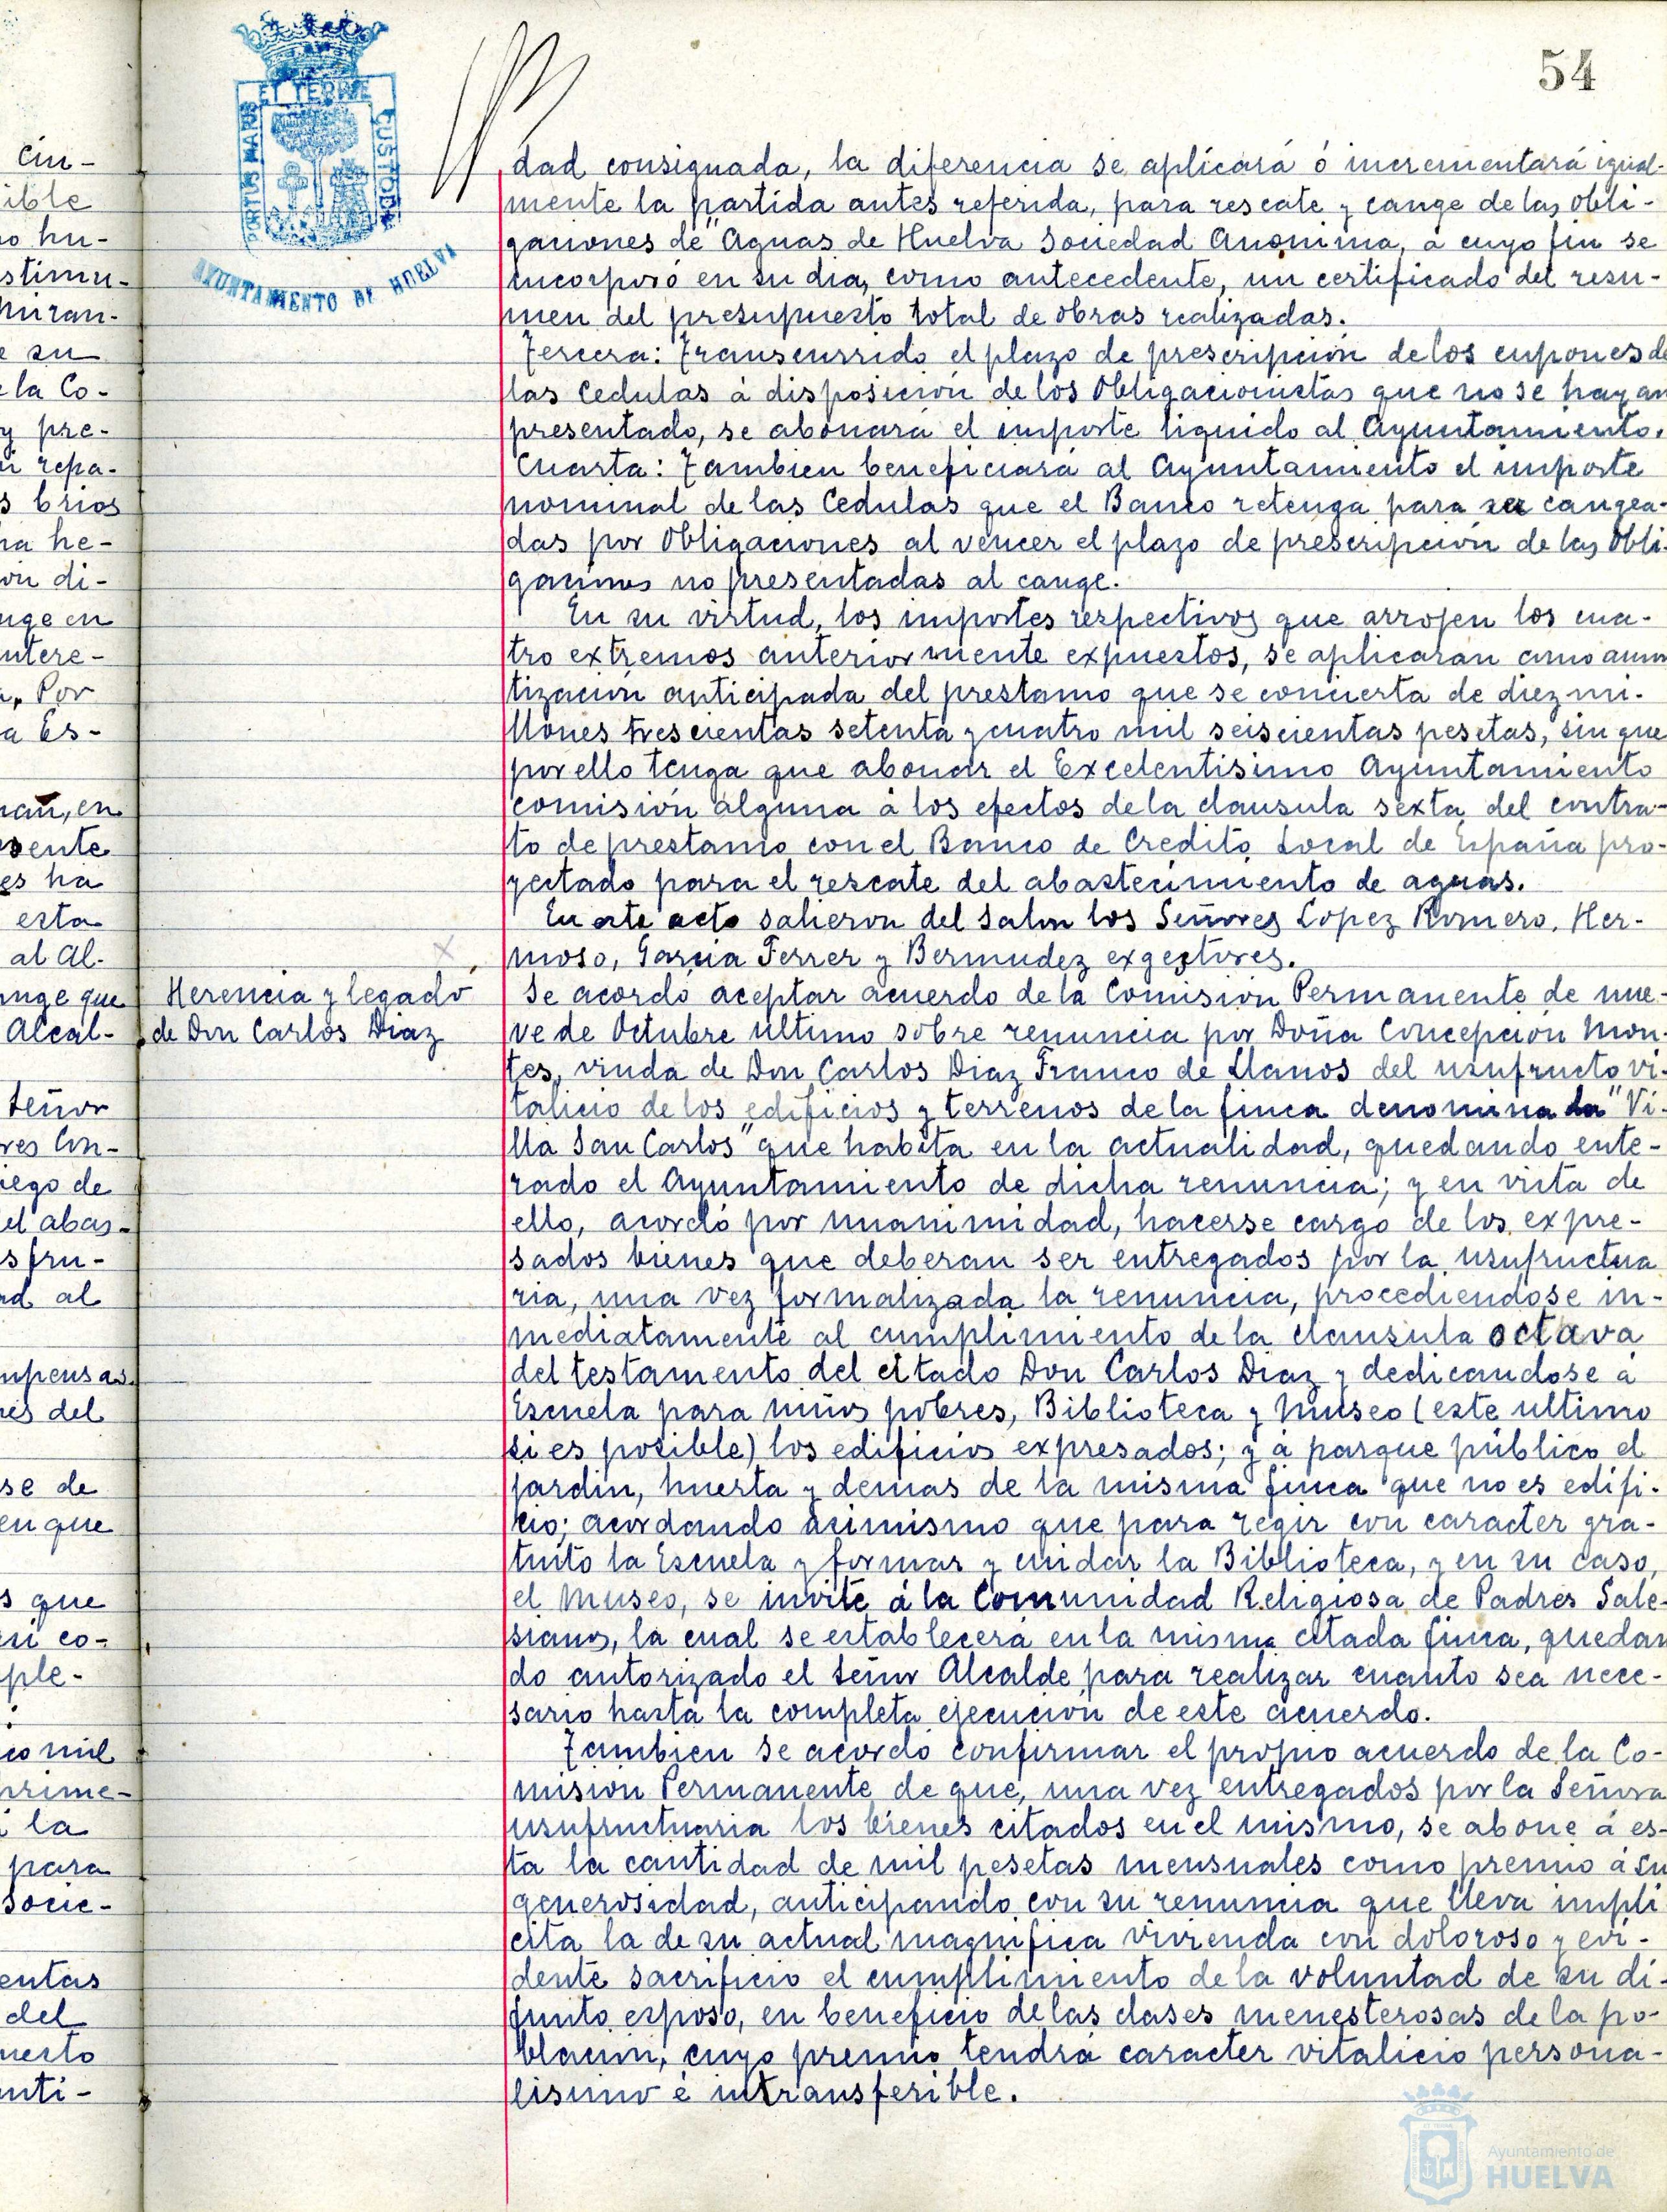 54
PORTUS MARIS ET TERRE CUSTODIA
AYUNTAMIENTO DE HUELVA
cin-
ible
o hu-
stimu-
miran-
e su
e la Co-
y pre-
repa-
s brios
ha he-
on di-
nge en
intere-
Por
a Es-
en
sente
es ha
esta
al Al-
ange que
Alcal-
Señor
res Con-
iego de
el abas-
sfru-
ad al
mpensas.
nes del
se de
en que
s que
en co-
ple-
co mil
prime-
i la
para
socie-
entas
del
uesto
anti-
dad consignada, la diferencia se aplicará ó incrementará igual-
mente la partida antes referida, para rescate y cange de las obli-
gaciones de "Aguas de Huelva Sociedad Anonima, á cuyo fin se
incorporó en su dia, como antecedente, un certificado del resu-
men del presupuesto total de obras realizadas.
Tercera: Transcurrido el plazo de prescripción de los cupones de
las Cedulas á disposición de los Obligacionistas que no se hayan
presentado, se abonará el importe liquido al Ayuntamiento.
Cuarta: Tambien beneficiará al Ayuntamiento el importe
nominal de las Cedulas que el Banco retenga para ser cangea-
das por Obligaciones al vencer el plazo de prescripción de las Obli-
gaciones no presentadas al cange.
En su virtud, los importes respectivos que arrojen los cua-
tro extremos anteriormente expuestos, se aplicarán como amor
tización anticipada del prestamo que se concierta de diez mi-
llones trescientas setenta y cuatro mil seiscientas pesetas, sin que
por ello tenga que abonar el Excelentisimo Ayuntamiento
comisión alguna á los efectos de la clausula sexta del contra-
to de prestamo con el Banco de Credito Local de España pro-
yectado para el rescate del abastecimiento de aguas.
En este acto salieron del Salon los Señores Lopez Romero, Her-
moso, Garcia Ferrer y Bermudez exgestores.
Herencia y legado
de Don Carlos Diaz
Se acordó aceptar acuerdo de la Comisión Permanente de nue-
ve de Octubre ultimo sobre renuncia por Doña Concepción Mon-
tes, viuda de Don Carlos Diaz Franco de Llanos del usufructo vi-
talicio de los edificios y terrenos de la finca denominada "Vi-
lla San Carlos" que habita en la actualidad, quedando ente-
rado el Ayuntamiento de dicha renuncia; y en vista de
ello, acordó por unanimidad, hacerse cargo de los expre-
sados bienes que deberan ser entregados por la usufructua
ria, una vez formalizada la renuncia, procediendose in-
mediatamente al cumplimiento de la clausula octava
del testamento del citado Don Carlos Diaz y dedicandose á
Escuela para niños pobres, Biblioteca y Museo (este ultimo
si es posible) los edificios expresados; y á parque público el
jardin, huerta y demas de la misma finca que no es edifi-
cio; acordando asimismo que para regir con caracter gra-
tuito la Escuela y formar y cuidar la Biblioteca, y en su caso,
el Museo, se invite á la Comunidad Religiosa de Padres Sale-
sianos, la cual se establecerá en la misma citada finca, quedan
do autorizado el Señor Alcalde para realizar cuanto sea nece-
sario hasta la completa ejecución de este acuerdo.
Tambien se acordó confirmar el propio acuerdo de la Co-
misión Permanente de que, una vez entregados por la Señora
usufructuaria los bienes citados en el mismo, se abone á es-
ta la cantidad de mil pesetas mensuales como premio á su
generosidad, anticipando con su renuncia que lleva impli
cita la de su actual magnifica vivienda con doloroso y evi-
dente sacrificio el cumplimiento de la voluntad de su di-
funto esposo, en beneficio de las clases menesterosas de la po-
blación, cuyo premio tendrá caracter vitalicio persona-
lisimo é intransferible.
Ayuntamiento de
HUELVA